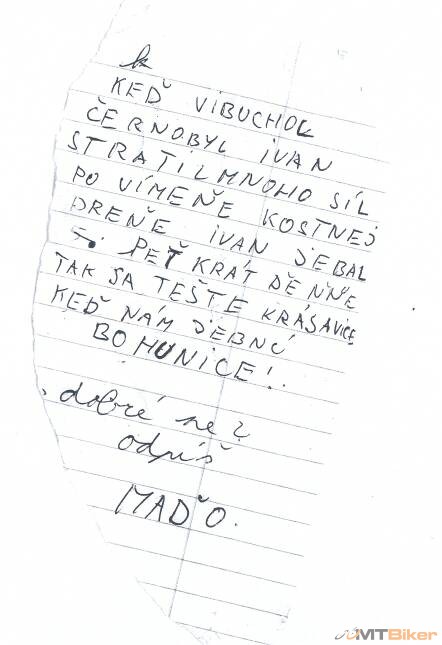 k
KEĎ VIBUCHOL
ČERNOBYL IVAN
STRATIL MNOHO SÍL
PO VÍMEŇE KOSTNEJ
DREŇE IVAN JEBAL
5. PEŤ KRÁT DĚNŇE
TAK SA TEŠTE KRÁSAVICE
KEĎ NÁM JEBNÚ
BOHUNICE!.
dobré ne?
odpíš
MAĎO.
MTBiker